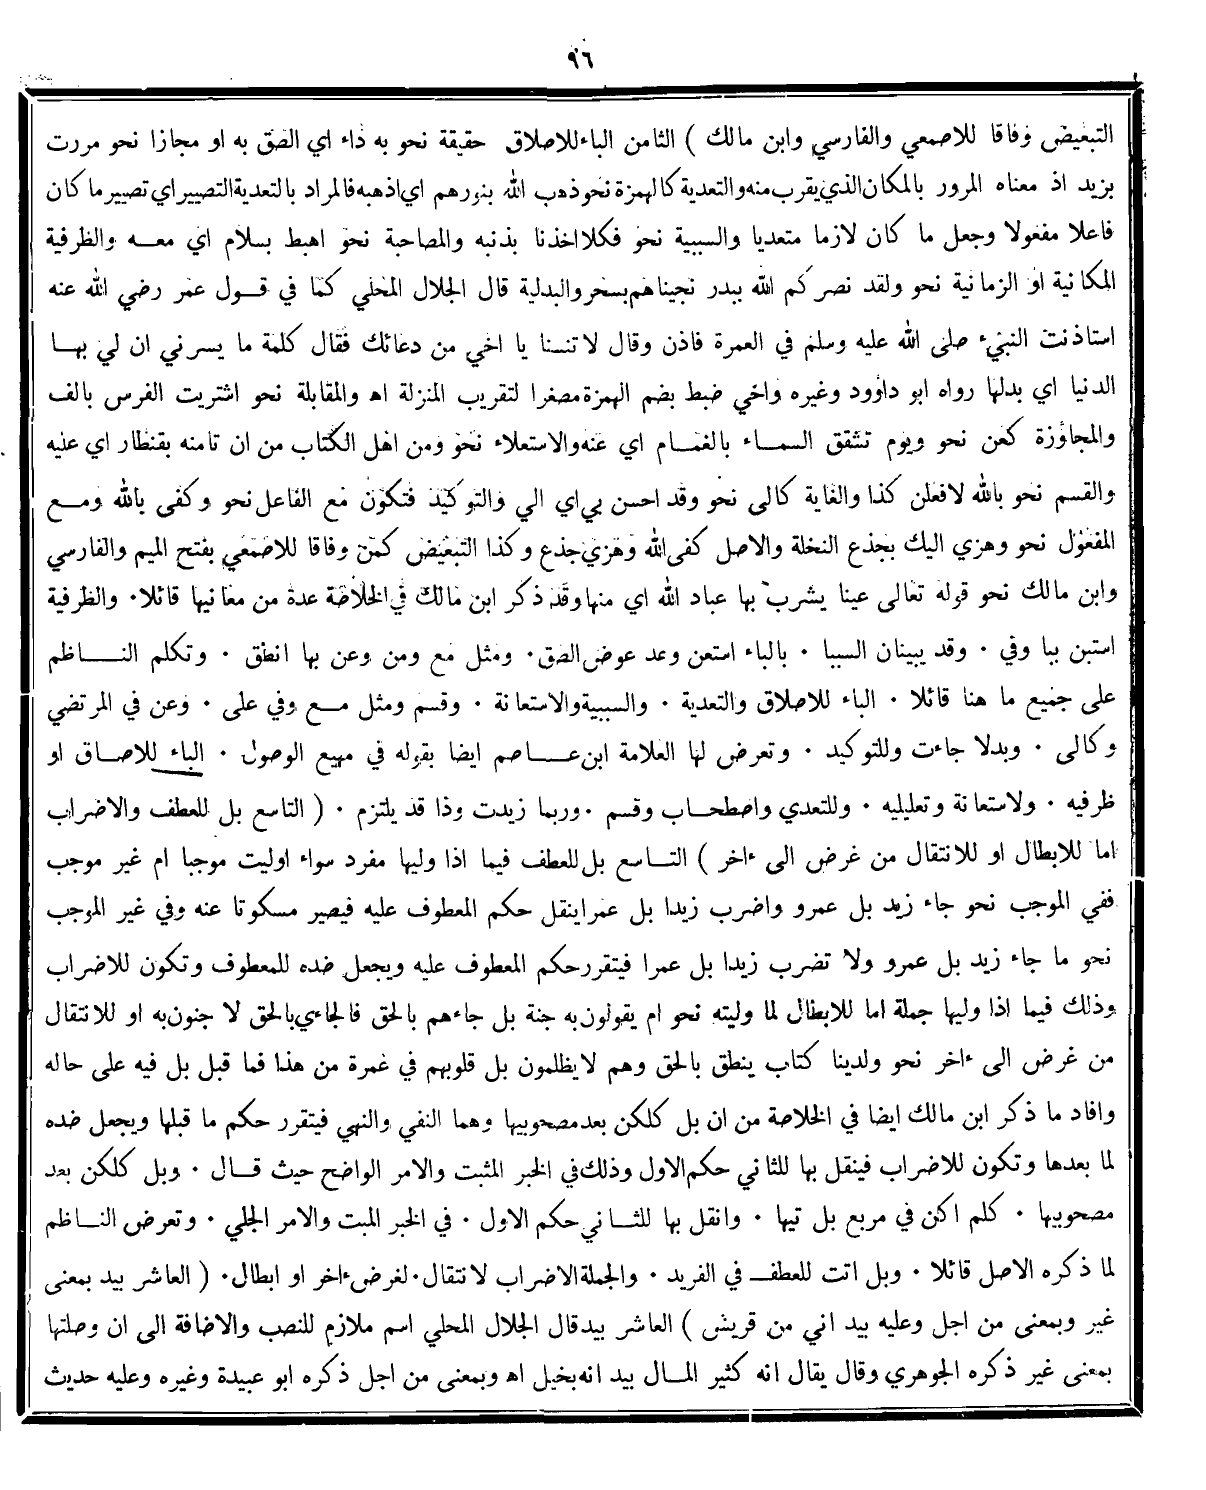 ٩٦
التبعيض وفاقا للاصمعي والفارسي وابن مالك ) الثامن الباء للاصلاق حقيقة نحو به داء اي الصق به او مجازا نحو مررت
بزيد اذ معناه المرور بالمكان الذي يقرب منه والتعدية كالهمزة نحو ذهب الله بنورهم اي اذهبه فالمراد بالتعدية التصيير اي تصيير ما كان
فاعلا مفعولا وجعل ما كان لازما متعديا والسببية نحو فكلا اخذنا بذنبه والمصاحبة نحو اهبط بسلام اي معه والظرفية
المكانية او الزمانية نحو ولقد نصركم الله ببدر نجيناهم بسحر والبدلية قال الجلال المحلي كما في قول عمر رضي الله عنه
استاذنت النبيء صلى الله عليه وسلم في العمرة فاذن وقال لا تنسنا يا اخي من دعائك فقال كلمة ما يسرني ان لي بها
الدنيا اي بدلها رواه ابو داوود وغيره واخي ضبط بضم الهمزة مصغرا لتقريب المنزلة اه والمقابلة نحو اشتريت الفرس بالف
والمجاوزة كعن نحو ويوم تشقق السماء بالغمام اي عنه والاستعلاء نحو ومن اهل الكتاب من ان تامنه بقنطار اي عليه
والقسم نحو بالله لافعلن كذا والغاية كالى نحو وقد احسن بي اي الي والتوكيد فتكون مع الفاعل نحو وكفى بالله ومع
المفعول نحو وهزي اليك بجذع النخلة والاصل كفى الله وهزي جذع وكذا التبعيض كمن وفاقا للاصمعي بفتح الميم والفارسي
وابن مالك نحو قوله تعالى عينا يشرب بها عباد الله اي منها وقد ذكر ابن مالك في الخلاصة عدة من معانيها قائلا ۰ والظرفية
استبن ببا وفي ۰ وقد يبينان السببا ۰ بالباء استعن وعد عوض الصق ۰ ومثل مع ومن وعن بها انطق ۰ وتكلم الناظم
على جميع ما هنا قائلا ۰ الباء للاصلاق والتعدية ۰ والسببية والاستعانة ۰ وقسم ومثل مع وفي على ۰ وعن في المرتضي
وكالى ۰ وبدلا جاءت وللتوكيد ۰ وتعرض لها العلامة ابن عاصم ايضا بقوله في مهيع الوصول ۰ الباء للاصاق او
ظرفيه ۰ ولاستعانة وتعليليه ۰ وللتعدي واصطحاب وقسم ۰ وربما زيدت وذا قد يلتزم ۰ ( التاسع بل للعطف والاضراب
اما للابطال او للانتقال من غرض الى ءاخر ) التاسع بل للعطف فيما اذا وليها مفرد سواء اوليت موجبا ام غير موجب
ففي الموجب نحو جاء زيد بل عمرو واضرب زيدا بل عمرا ينقل حكم المعطوف عليه فيصير مسكوتا عنه وفي غير الموجب
نحو ما جاء زيد بل عمرو ولا تضرب زيدا بل عمرا فيتقرر حكم المعطوف عليه ويجعل ضده للمعطوف وتكون للاضراب
وذلك فيما اذا وليها جملة اما للابطال لما وليته نحو ام يقولون به جنة بل جاءهم بالحق فالجاءي بالحق لا جنون به او للانتقال
من غرض الى ءاخر نحو ولدينا كتاب ينطق بالحق وهم لا يظلمون بل قلوبهم في غمرة من هذا فما قبل بل فيه على حاله
وافاد ما ذكر ابن مالك ايضا في الخلاصة من ان بل كلكن بعد مصحوبيها وهما النفي والنهي فيتقرر حكم ما قبلها ويجعل ضده
لما بعدها وتكون للاضراب فينقل بها للثاني حكم الاول وذلك في الخبر المثبت والامر الواضح حيث قال ۰ وبل كلكن بعد
مصحوبيها ۰ كلم اكن في مربع بل تيها ۰ وانقل بها للثاني حكم الاول ۰ في الخبر المبت والامر الجلي ۰ وتعرض الناظم
لما ذكره الاصل قائلا ۰ وبل اتت للعطف في الفريد ۰ والجملة الاضراب لانتقال ۰ لغرض ءاخر او ابطال ۰ ( العاشر بيد بمعنى
غير وبمعنى من اجل وعليه بيد اني من قريش ) العاشر بيد قال الجلال المحلي اسم ملازم للنصب والاضافة الى ان وصلتها
بمعنى غير ذكره الجوهري وقال يقال انه كثير المال بيد انه بخيل اه وبمعنى من اجل ذكره ابو عبيدة وغيره وعليه حديث